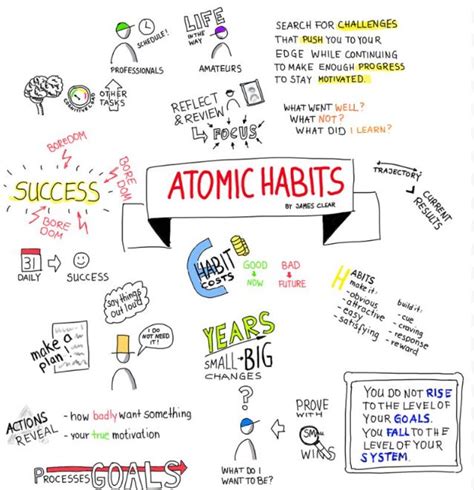 SCHEDULE!
PROFESSIONALS
LIFE
IN THE
WAY
AMATEURS
SEARCH FOR CHALLENGES
THAT PUSH YOU TO YOUR
EDGE WHILE CONTINUING
TO MAKE ENOUGH PROGRESS
TO STAY MOTIVATED.
COGNITIVE LOAD
OTHER
TASKS
REFLECT
& REVIEW
FOCUS
WHAT WENT WELL?
WHAT NOT?
WHAT DID I LEARN?
BOREDOM
BOREDOM
SUCCESS
BORE
DOM
BORE
DOM
ATOMIC HABITS
BY JAMES CLEAR
TRAJECTORY
CURRENT
RESULTS
31
DAILY
SUCCESS
HABIT
COSTS
GOOD
NOW
BAD
FUTURE
HABITS
make it:
- obvious
- attractive
- easy
- satisfying
build it:
- cue
- craving
- response
- reward
say things
out loud!
make a
plan!
I DO
NOT NEED
IT!
YEARS
SMALL BIG
CHANGES
ACTIONS
REVEAL
- how badly want something
- your true motivation
PROCESSES GOALS
?
WHAT DO I
WANT TO BE?
PROVE
WITH
SMALL
WINS
YOU DO NOT RISE
TO THE LEVEL OF
YOUR GOALS.
YOU FALL TO THE
LEVEL OF YOUR
SYSTEM.